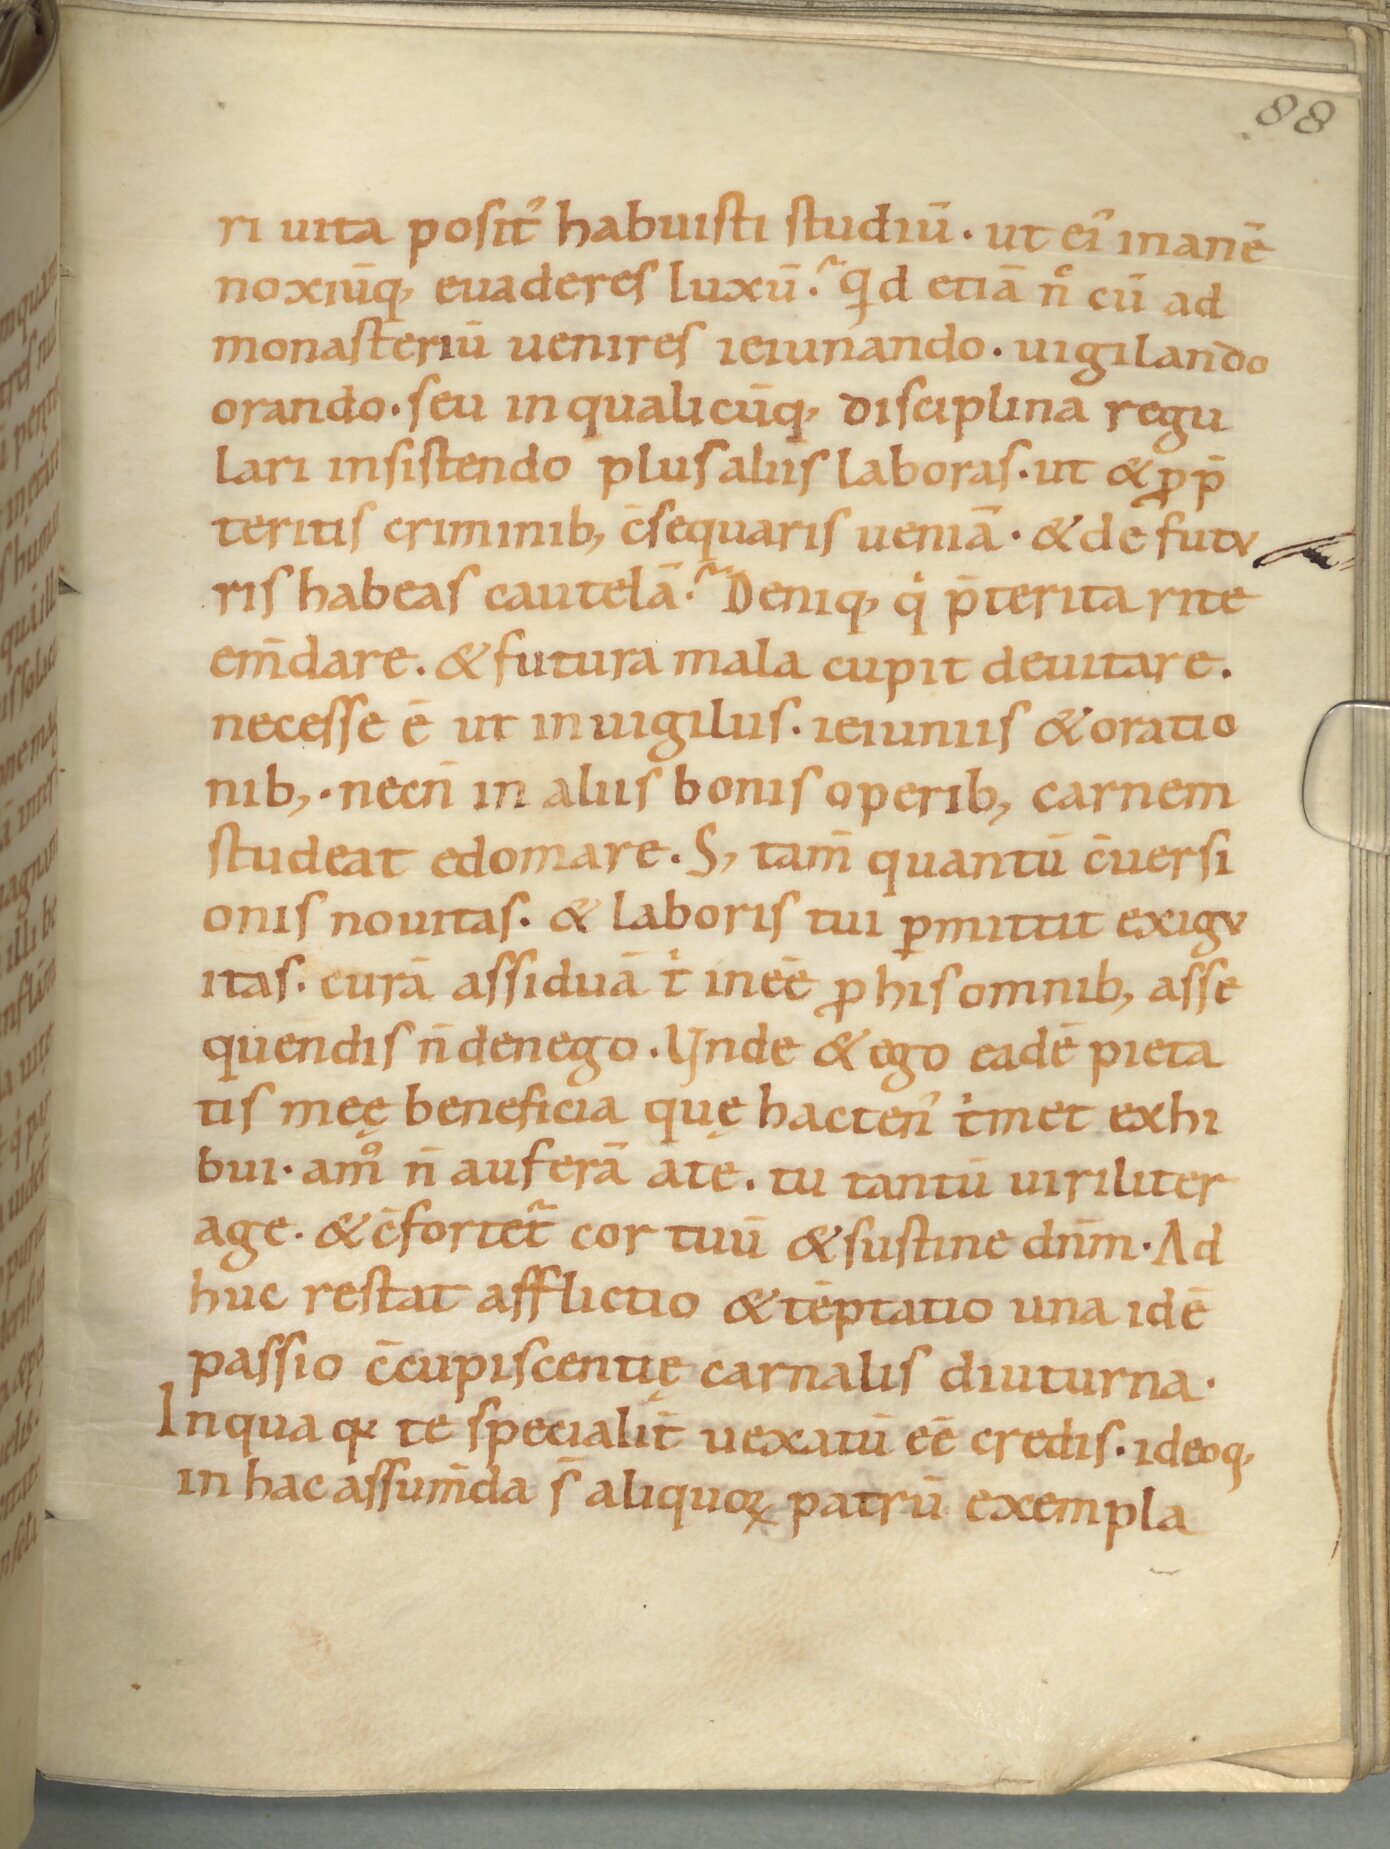 88
ri uita posit᾿ habuisti studiū. ut ei᾿ inanē
noxiūq, euaderes luxū? qd etiā n̄c cū ad
monasteriū uenires ieiunando. uigilando
orando. seu in qualicūq, disciplina regu
lari insistendo plus aliis laboras. ut & ꝓ p̄
teritis criminib, c̄sequaris ueniā. & de futu
ris habeas cautelā? Deniq, qⁱ p̄terita rite
em̄dare. & futura mala cupit deuitare.
necesse ē ut in uigiliis. ieiuniis & oratio
nib,. necn̄ in aliis bonis operib, carnem
studeat edomare. S, tam̄ quantū c̄uersi
onis nouitas. & laboris tui ꝑmittit exigu
itas. curā assiduā tⁱ ineē ꝓ his omnib, asse
quendis n̄ denego. Unde & ego eadē pieta
tis meę beneficia quę hacten᾿ tⁱmet exhi
bui. am̊ n̄ auferā a te. tu tantū uiriliter
age. & c̄fortet᷑ cor tuū & sustine dn̄m. Ad
huc restat afflictio & tēptatio una idē
passio c̄cupiscentię carnalis diuturna.
In qua qꝛ te specialit̄ uexatū eē credis. ideoq,
in hac assum̄da s̄ aliquoꝝ patrū exempla